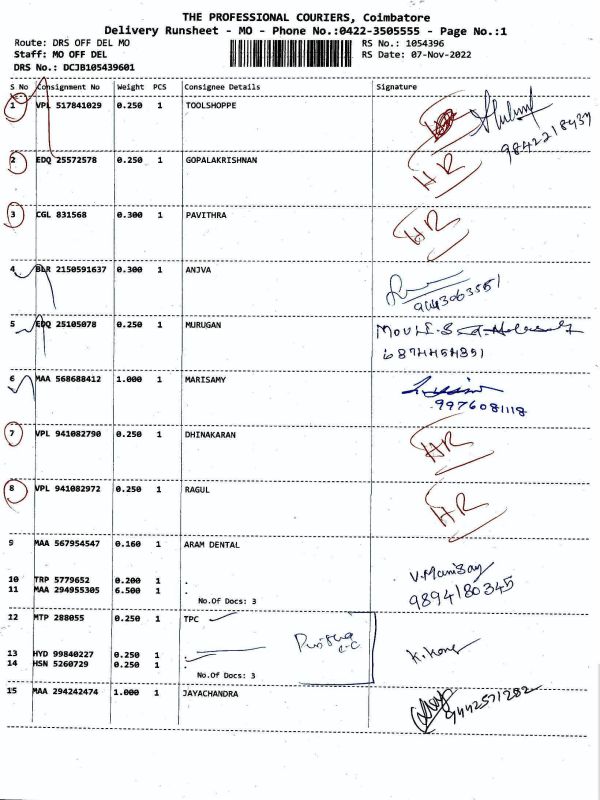 THE PROFESSIONAL COURIERS, Coimbatore
Delivery Runsheet - MO - Phone No.:0422-3505555 - Page No.:1
Route: DRS OFF DEL MO RS No.: 1054396
Staff: MO OFF DEL RS Date: 07-Nov-2022
DRS No.: DCJB105439601
S No Consignment No Weight PCS Consignee Details Signature
1 VPL 517841029 0.250 1 TOOLSHOPPE
9842218437
2 EDQ 25572578 0.250 1 GOPALAKRISHNAN HR
3 CGL 831568 0.300 1 PAVITHRA HR
4 BLR 2150591637 0.300 1 ANJVA
5 EDQ 25105078 0.250 1 MURUGAN
6 MAA 568688412 1.000 1 MARISAMY
9976081118
7 VPL 941082790 0.250 1 DHINAKARAN HR
8 VPL 941082972 0.250 1 RAGUL HR
9 MAA 567954547 0.160 1 ARAM DENTAL
10 TRP 5779652 0.200 1
11 MAA 294955305 6.500 1
9894180345
No.Of Docs: 3
12 MTP 288055 0.250 1 TPC
13 HYD 99840227 0.250 1
14 HSN 5260729 0.250 1
No.Of Docs: 3
15 MAA 294242474 1.000 1 JAYACHANDRA
9442571282